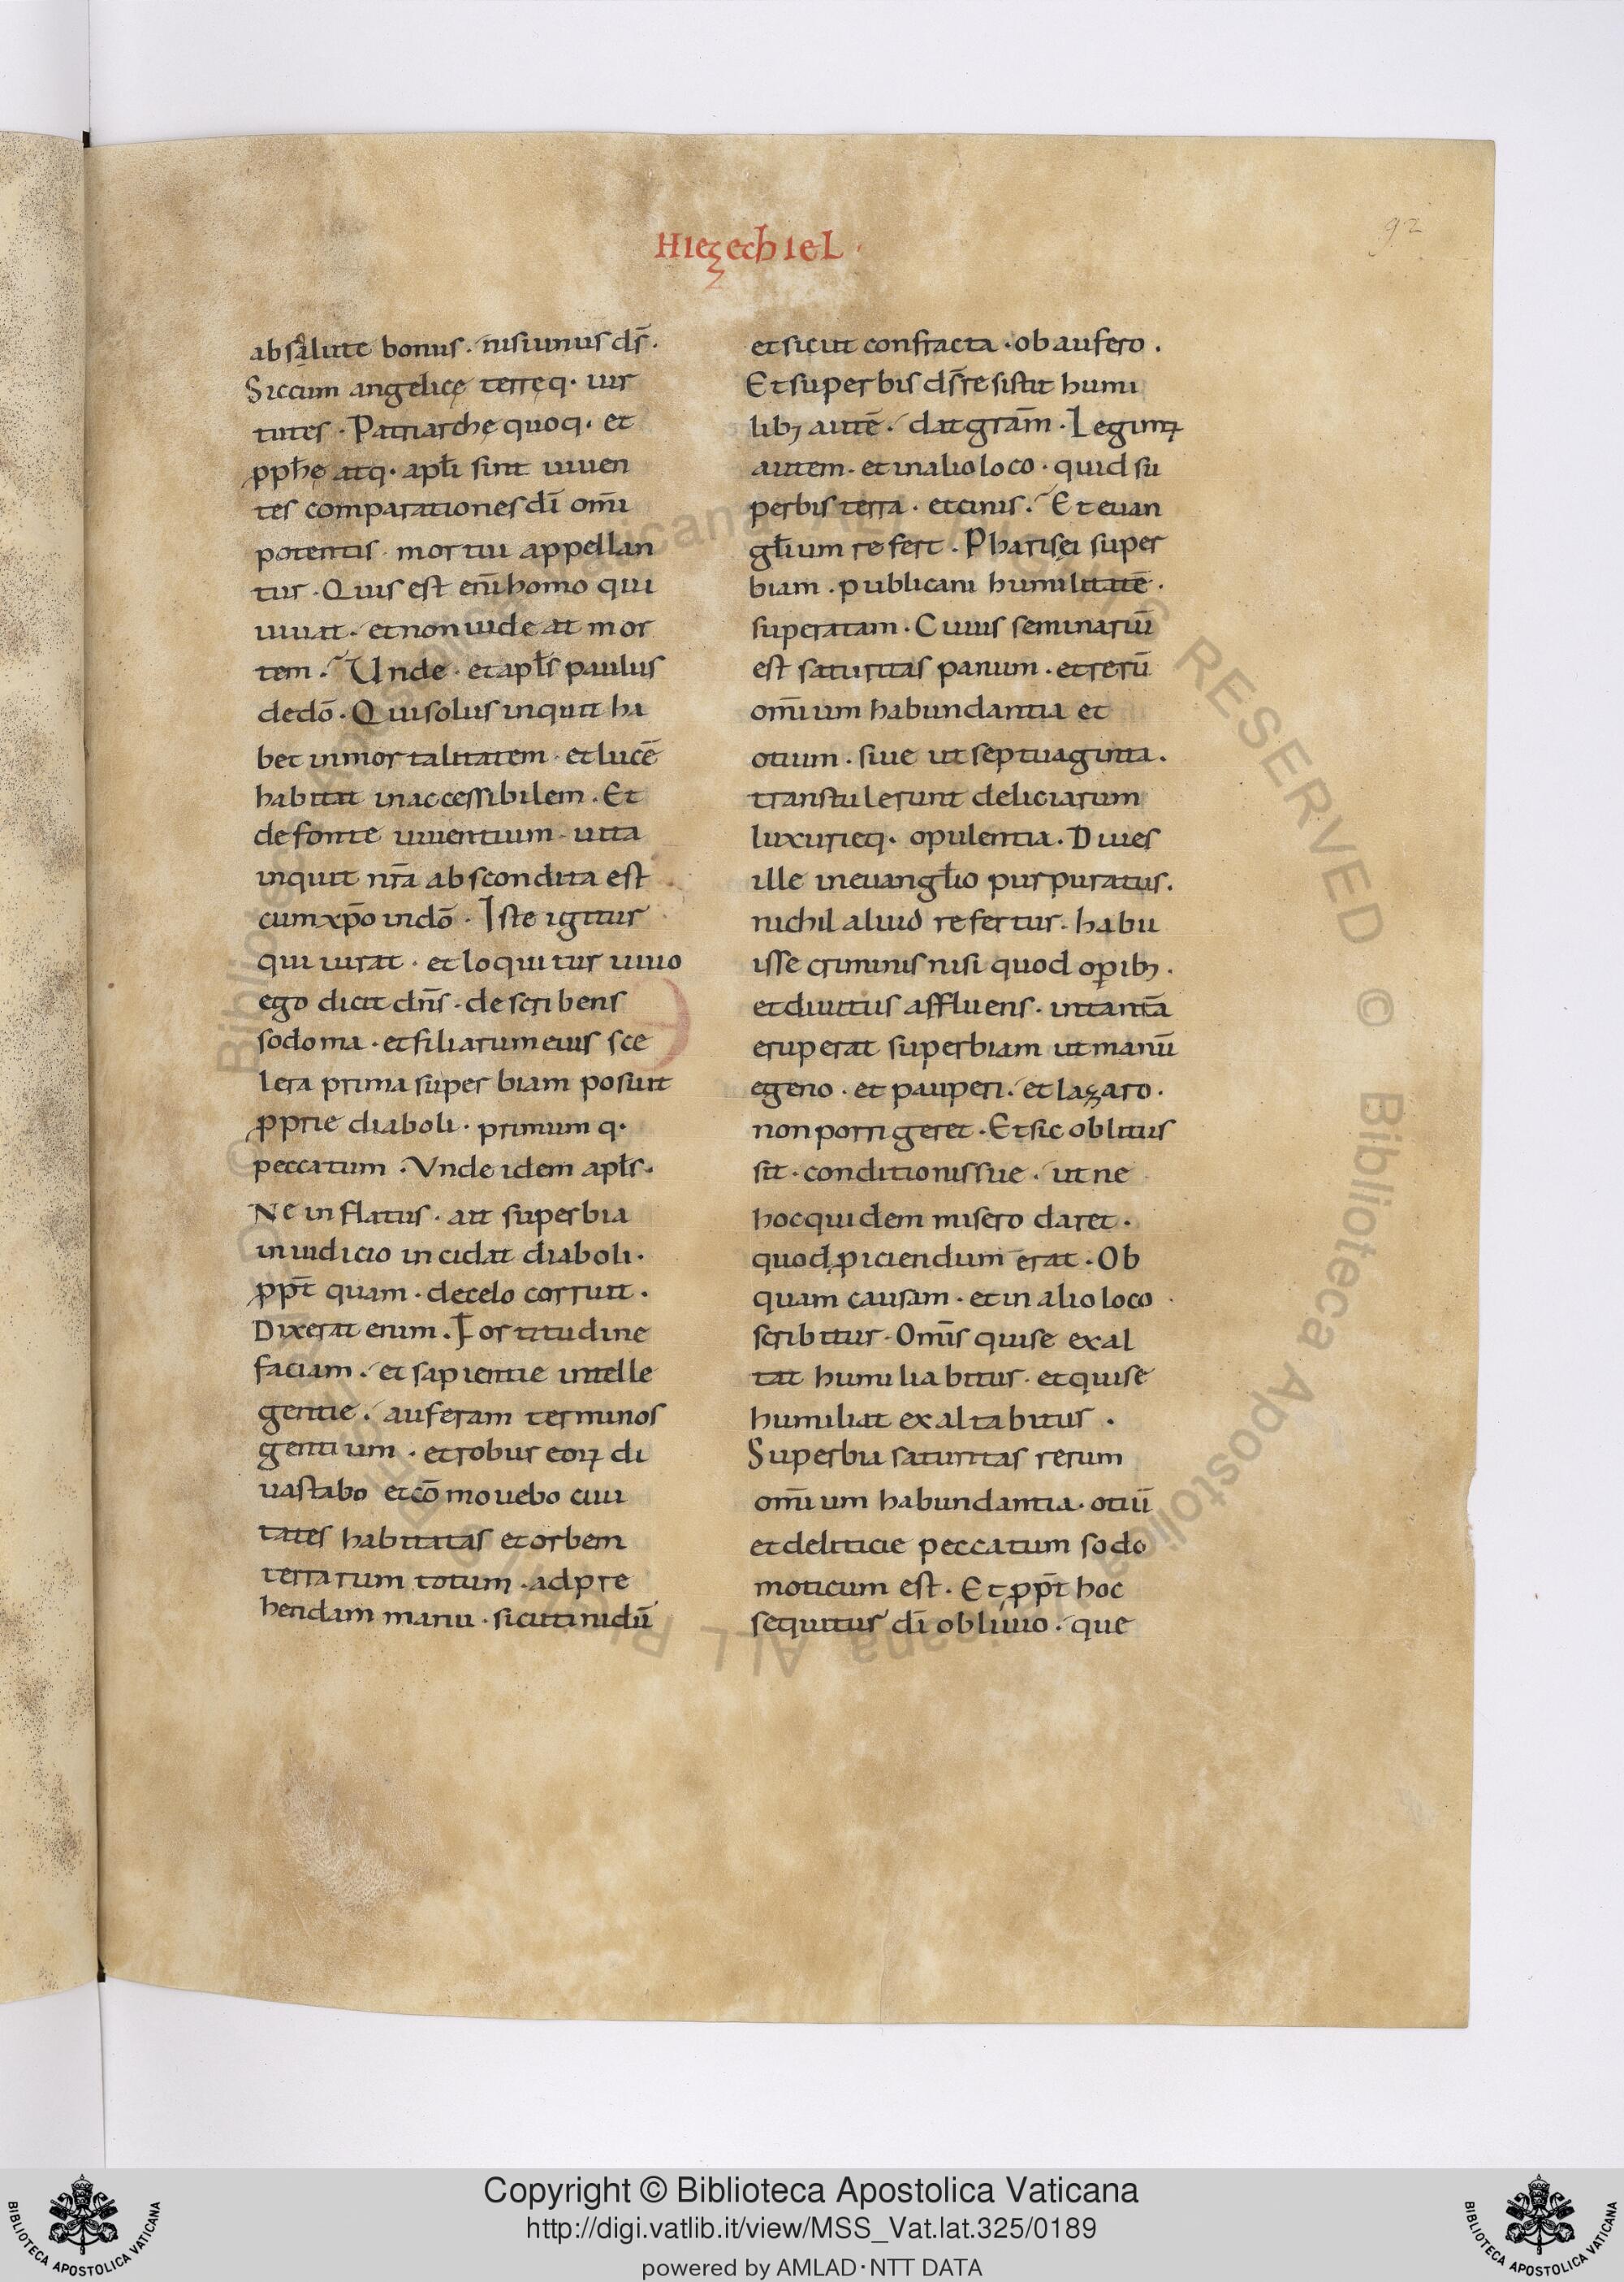 Hiezechiel ·
92
absolute bonus · nisi unus dс̄ ·
Sic cum angelicę terręq · uir
tutes · Patriarchę quoq · et
pphę atq · apłi sint uiuen
tes comparationes dī om̄i
potentis mortui appellan
tur · Quis est eni̅ homo qui
uiuat · et non uideat mor
tem · Unde · et apłs paulus
de dō · Qui solus inquit ha
bet inmortalitatem · et lucē
habitat inaccessibilem · Et
de fonte uiuentium · uita
inquit nr̄a abscondita est
cum xp̄o in dō · Iste igitur
qui iurat · et loquitur uiuo
ego dicit dn̄s · describens
sodoma · et filiarum eius sce
lera prima superbiam posuit
pprie diaboli · primum q ·
peccatum · Vnde idem apłs ·
Ne inflatus · ait superbia
in iudicio incidat diaboli ·
ppt̄ quam · de celo corruit ·
Dixerat enim · Fortitudine
faciam · et sapientie intelle
gentie · auferam terminos
gentium · et robur eoꝝ di
uastabo et cōmouebo ciui
tates habitatas et orbem
terrarum totum · adpre
hendam manu · sicuti nidū
et sicut confracta · ob aufero ·
Et superbis ds̄ resistit humi
libꝫ autē · dat grām · Legimꝰ
autem · et in alio loco · quid su
perbis terra · et cinis · Et euan
głium refert · Pharisęi super
biam · publicani humilitatē ·
superatam · Cuius seminariū
est saturitas panum · et rerū
om̄ium habundantia et
otium · siue ut septuaginta ·
transtulerunt deliciarum
luxurieq · opulentia · Diues
ille in euangłio purpuratus ·
nichil aliud refertur · habu
isse criminis nisi quod opibꝫ ·
et diuitiis affluens · in tantā
eruperat superbiam ut manū
egeno · et pauperi · et lazaro ·
non porrigeret · Et sic oblitus
sit · conditionis sue · ut ne
hoc quidem misero daret ·
quod ꝓiciendum erat · Ob
quam causam · et in alio loco ·
scribitur · Om̄is qui se exal
tat humiliabitur · et qui se
humiliat exaltabitur ·
Superbia saturitas rerum
om̄ium habundantia · otiū
et delitiae peccatum sodo
moticum est · Et ppt̄ hoc
sequitur dī obliuio · que
Copyright © Biblioteca Apostolica Vaticana
http://digi.vatlib.it/view/MSS_Vat.lat.325/0189
powered by AMLAD·NTT DATA